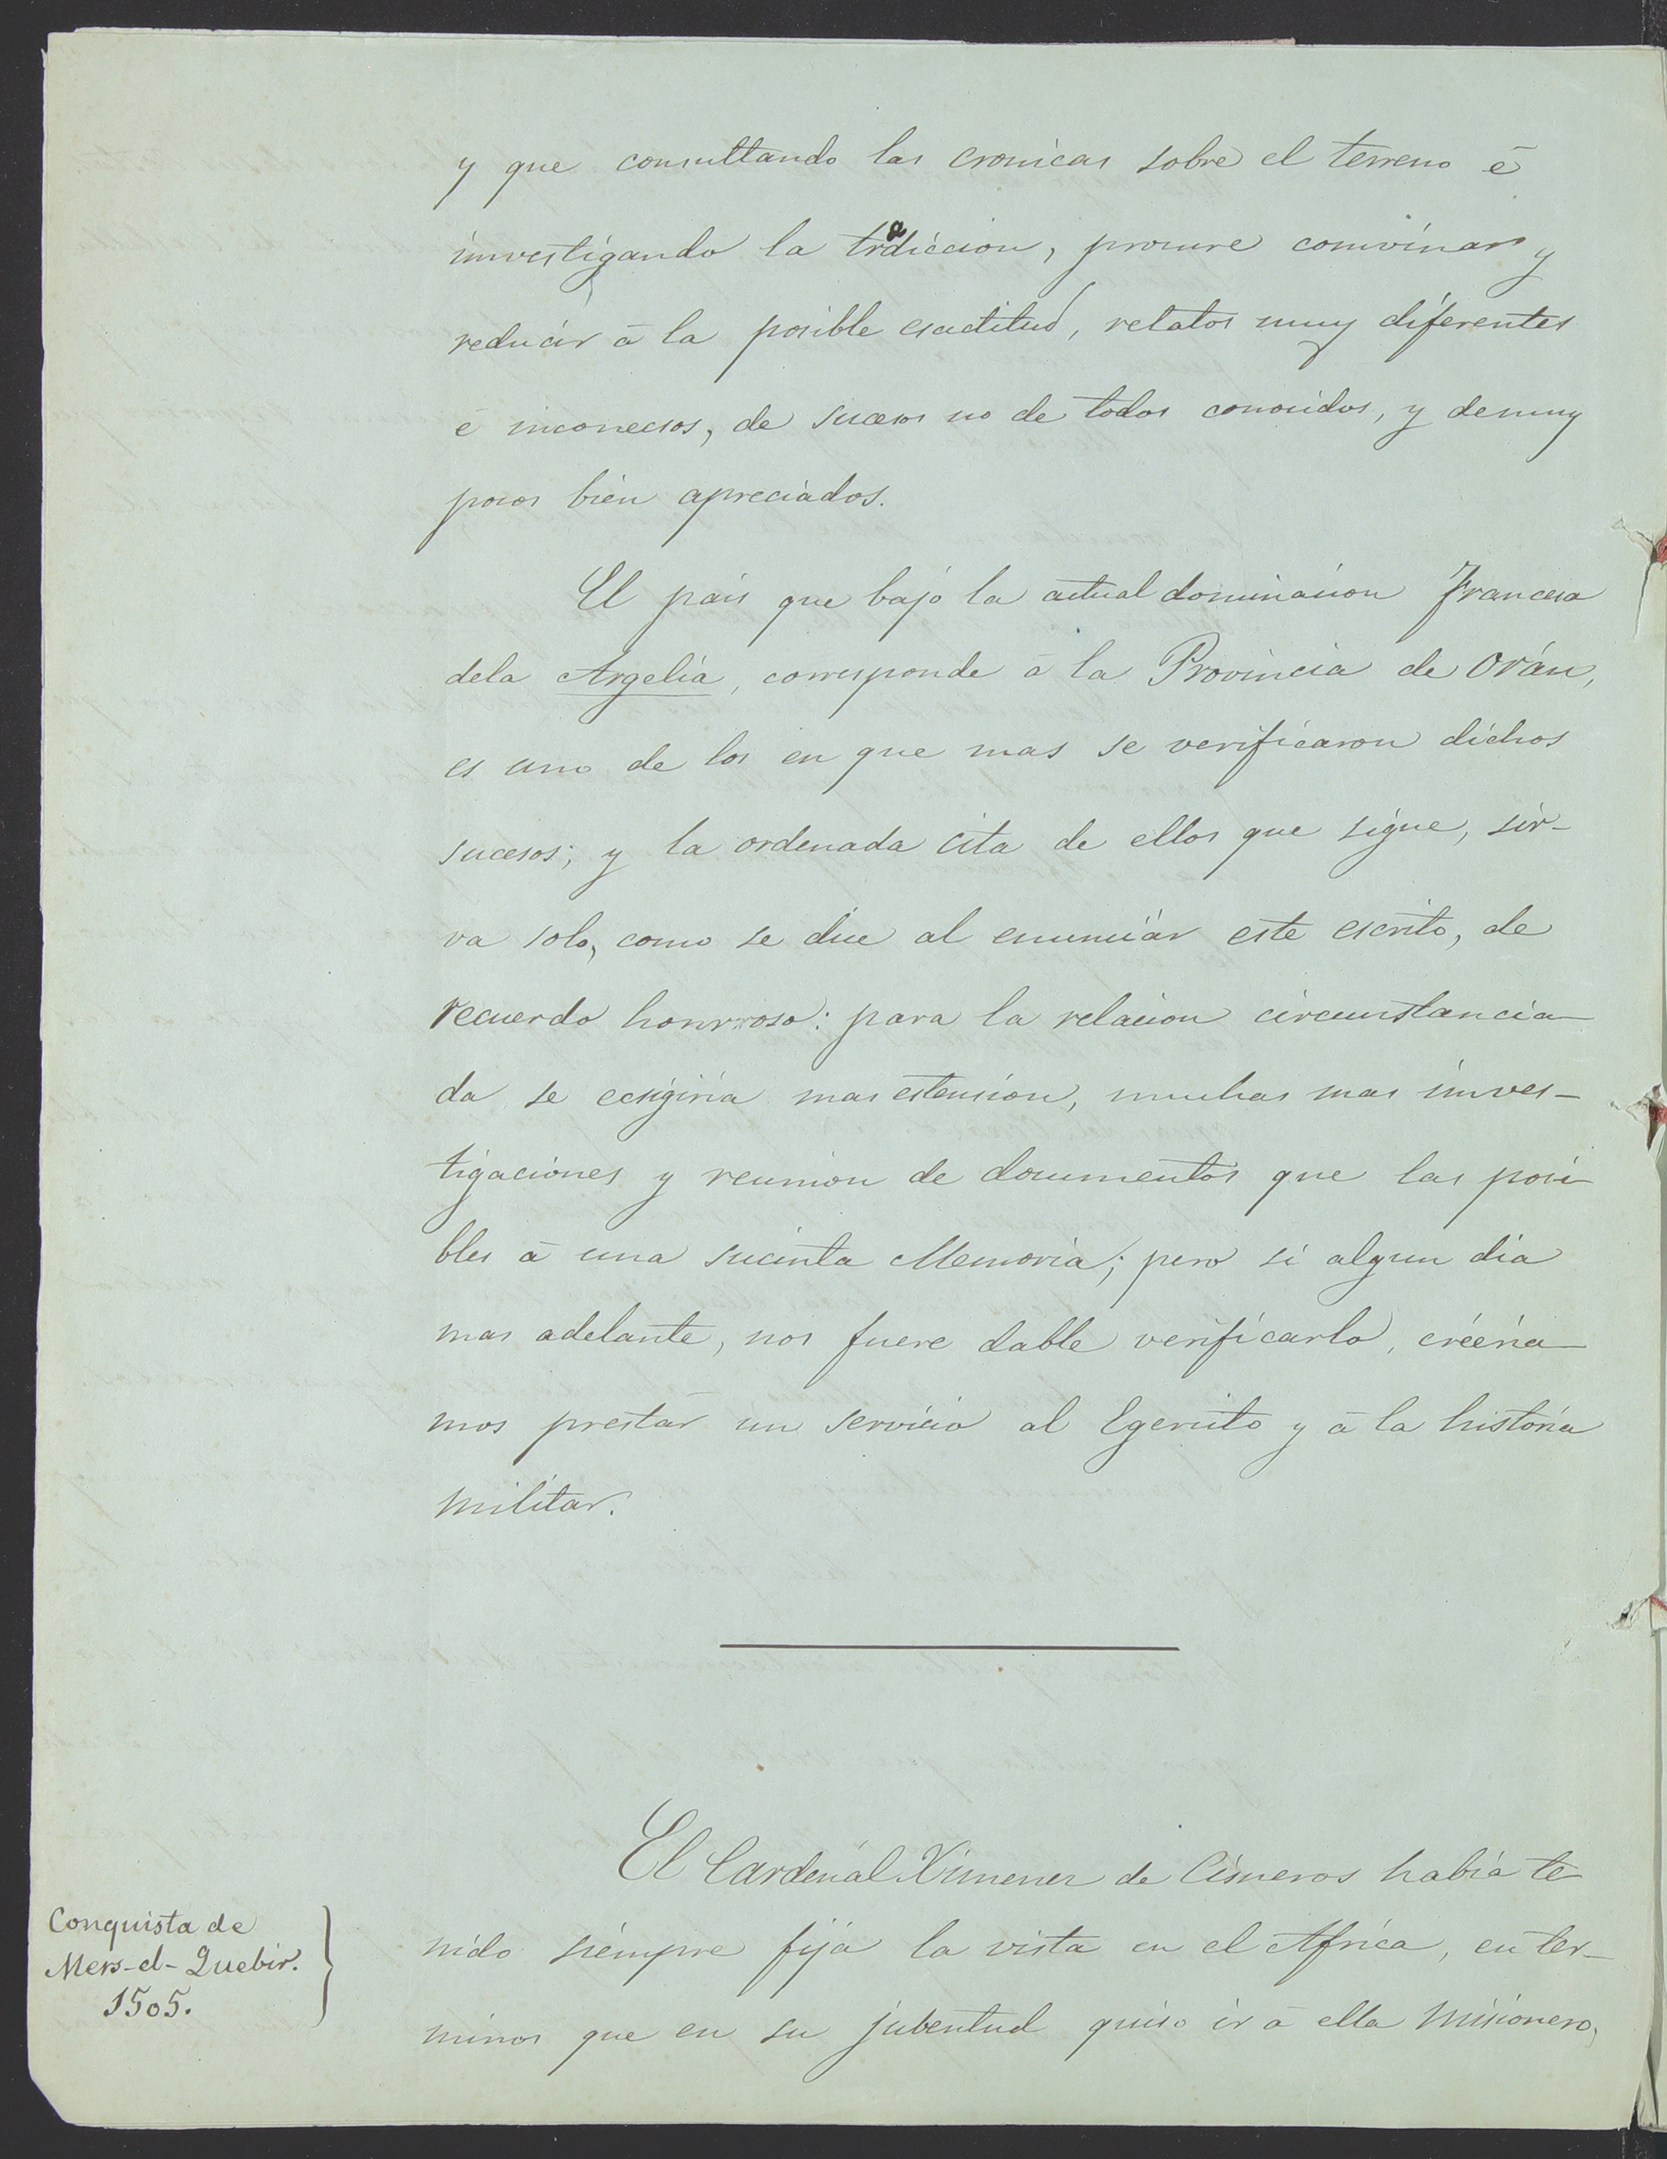 y que consultando las cronicas sobre el terreno é
investigando la tradiccion, procure comvinar y
reducir á la posible esactitud, relatos muy diferentes
é inconecsos, de sucesos no de todos conocidos, y demuy
pocos bien apreciados.
El pais que bajo la actual dominacion Francesa
dela Argelia, corresponde á la Provincia de Orán,
es uno de los en que mas se verificaron dichos
sucesos; y la ordenada cita de ellos que sigue, sir-
va solo, como se dice al enunciar este escrito, de
recuerdo honrroso: para la relacion circunstancia-
da se ecsigiria mas estension, muchas mas inves-
tigaciones y reunion de documentos que las posi-
bles á una sucinta Memoria; pero si algun dia
mas adelante, nos fuere dable verificarlo, créeria-
mos prestar un servicio al Egercito y á la historia
militar.
El Cardenal Ximenez de Cisneros habia te-
Conquista de
Mers-el-Quebir.
1505.
nido siempre fija la vista en el Africa, en ter-
minos que en su jubentud quiso ir á ella Misionero,